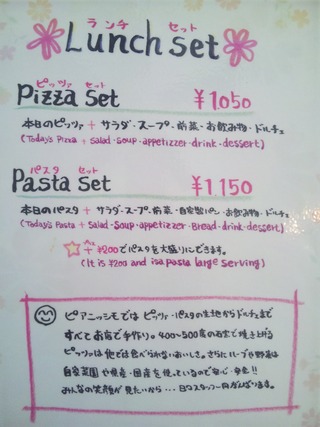 ランチ セット
Lunch set
ピッツァ セット
Pizza set ¥1,050
本日のピッツァ + サラダ・スープ・前菜・お飲み物・ドルチェ
(Today's Pizza + salad・soup・appetizzer・drink・dessert)
パスタ セット
Pasta set ¥1150
本日のパスタ + サラダ・スープ・前菜・自家製パン・お飲み物・ドルチェ
(Today's Pasta + Salad・Soup・appetizzer・Bread・drink・dessert)
☆プラス + ¥200でパスタを大盛りにできます。
(It is ¥200 and isa pasta large serving)
ピアニッシモでは ピッツァ・パスタの生地からドルチェまで
すべてお店で手作り。400~500度の石窯で焼き上げる
ピッツァは他では食べられないおいしさ。さらにハーブや野菜は
自家菜園や県産・国産を使っているので安心・安全!!
みんなの笑顔が見たいから…日々スタッフ一同がんばります。